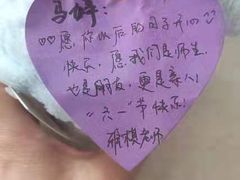 愿你以后的日子开心
快乐，愿我们是师生，
也是朋友，更是亲人！
“六一”节快乐！
老师